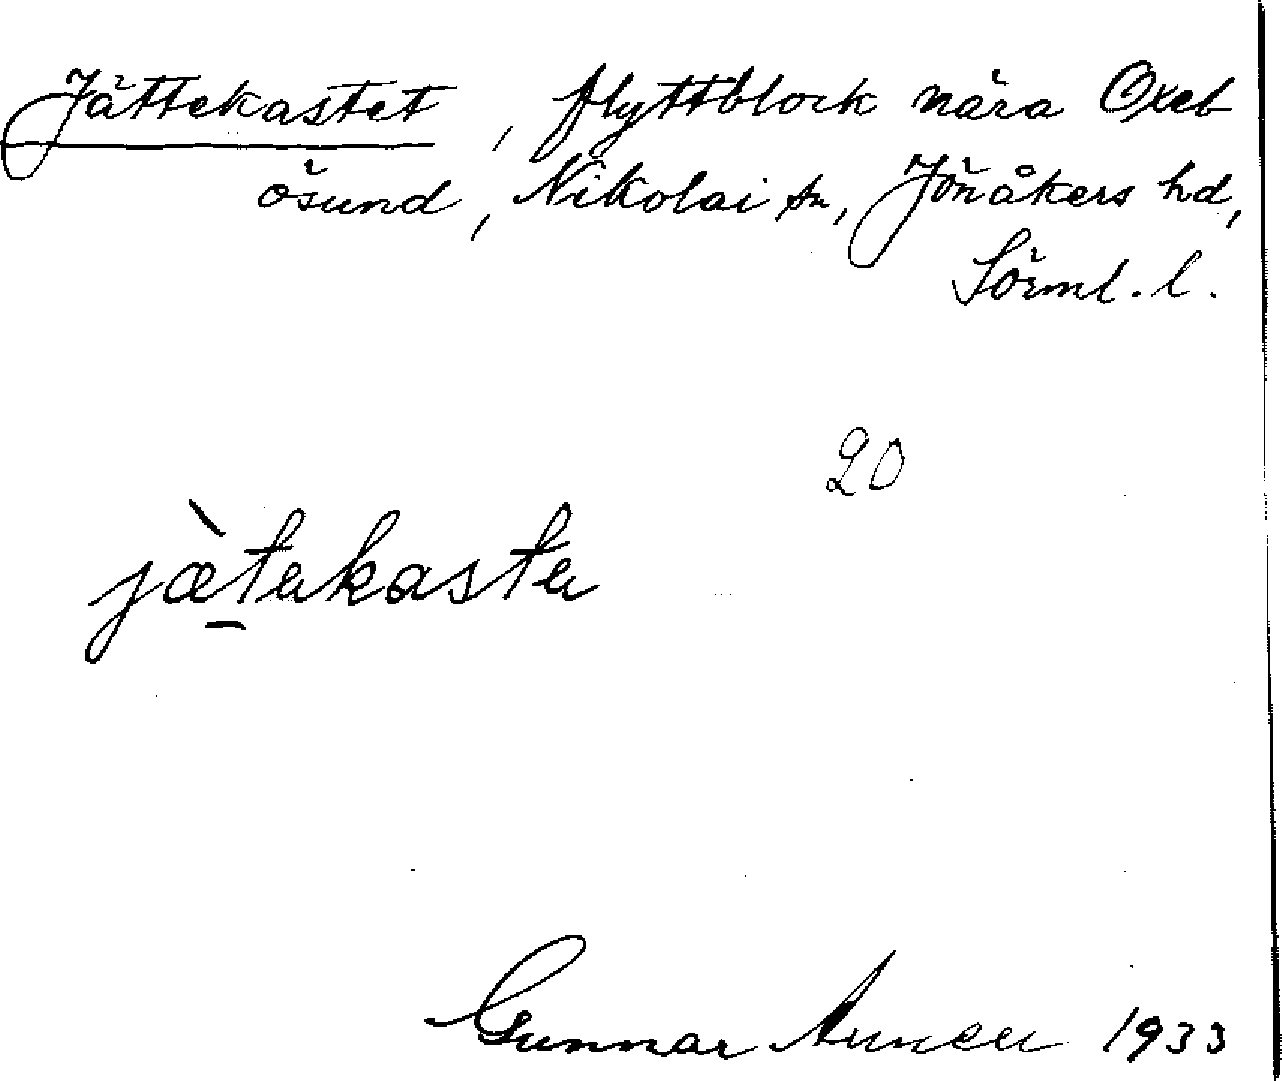 Jättekastet, flyttblock nära Oxel
ösund, Nikolai sn, Jönåkers hd,
Sörml. l.
20
jæ̀t̠akasta
Gunnar 1933